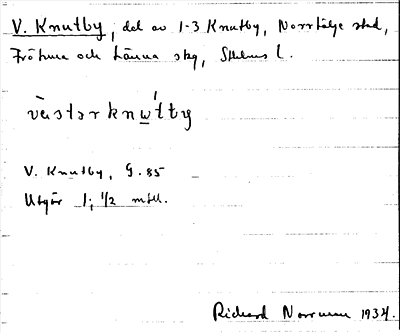 V. Knutby, del av 1-3 Knutby, Norrtälje stad,
Frötuna och Länna skg, Sthlms l.
västərknu̲ttby
V. Knutby, G. 85
Utgör 1; 1/2 mtl.
Richard Norrman 1934.